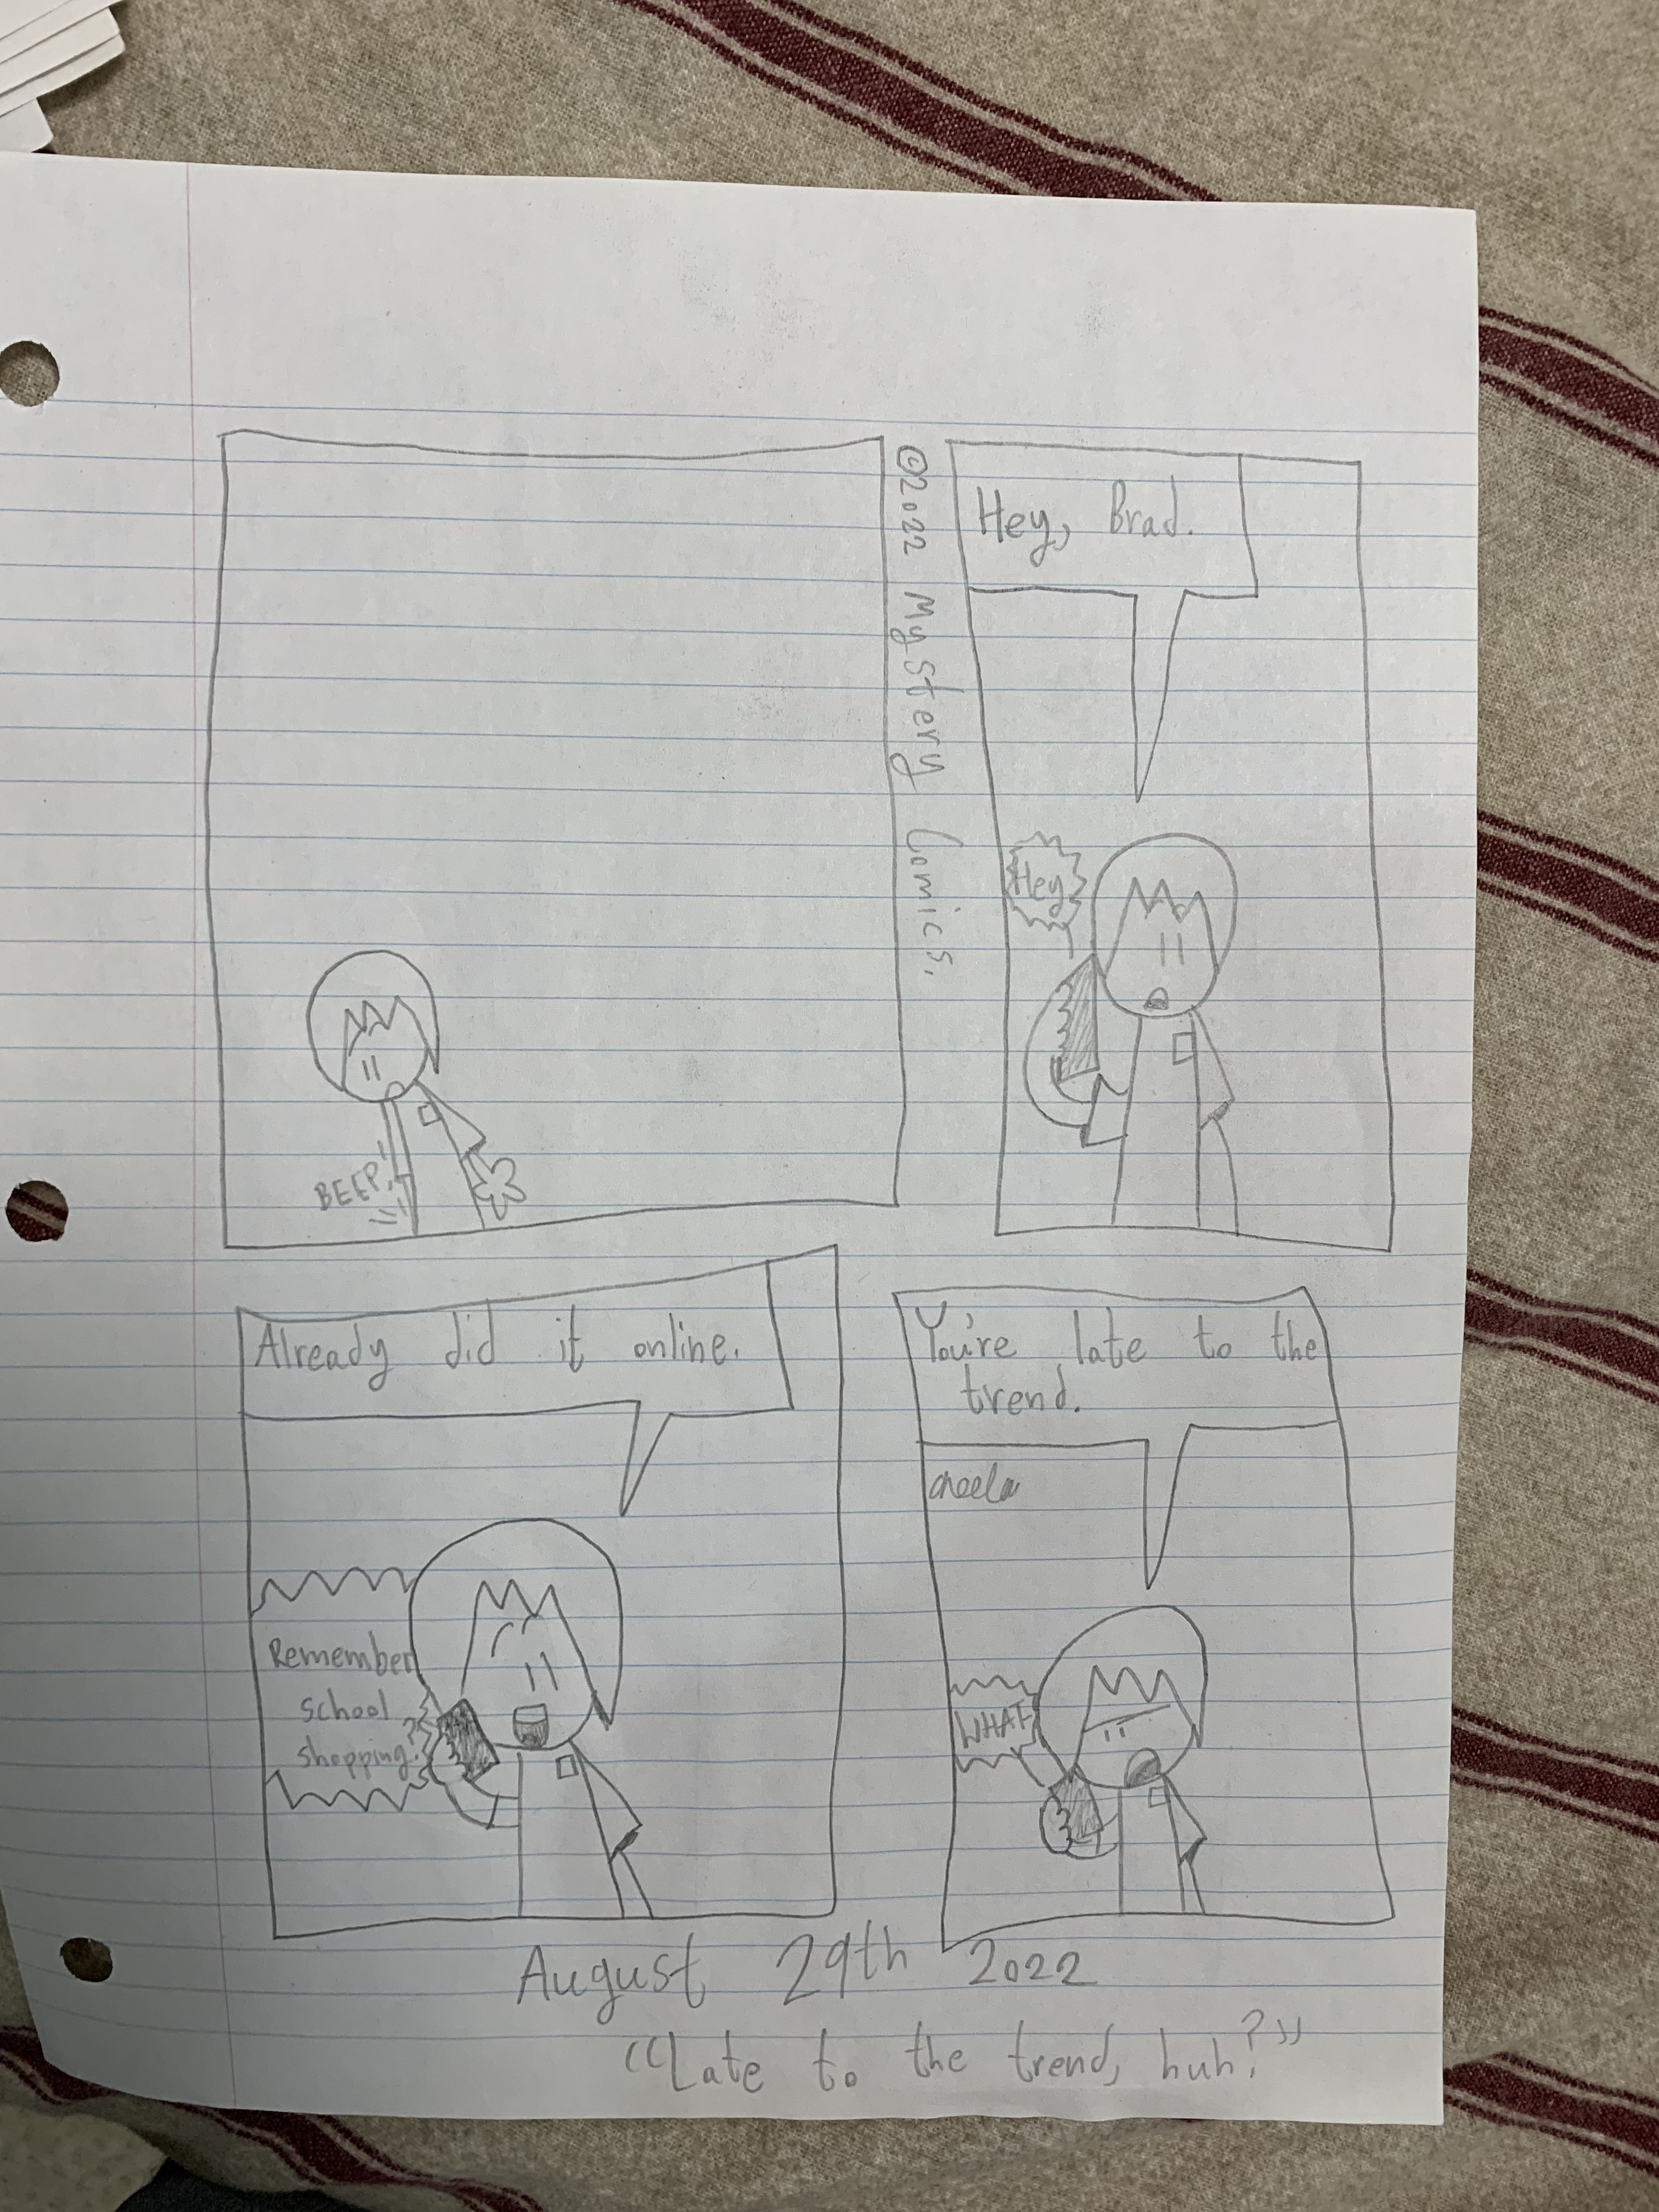 BEEP!
©2022 Mystery Comics.
Hey, Brad.
Hey
Already did it online.
Remember
school
shopping?
You're late to the
trend.
WHAT
August 29th 2022
"Late to the trend, huh?"